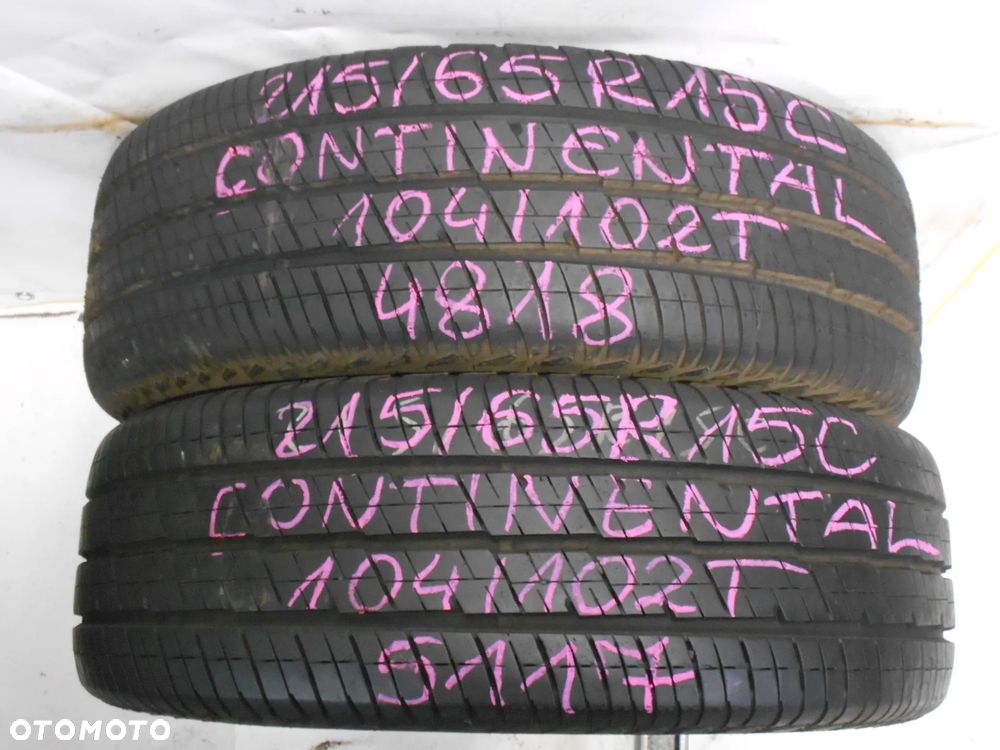 215/65R15C
CONTINENTAL
104/102T
4818
215/65R15C
CONTINENTAL
104/102T
5117
OTOMOTO